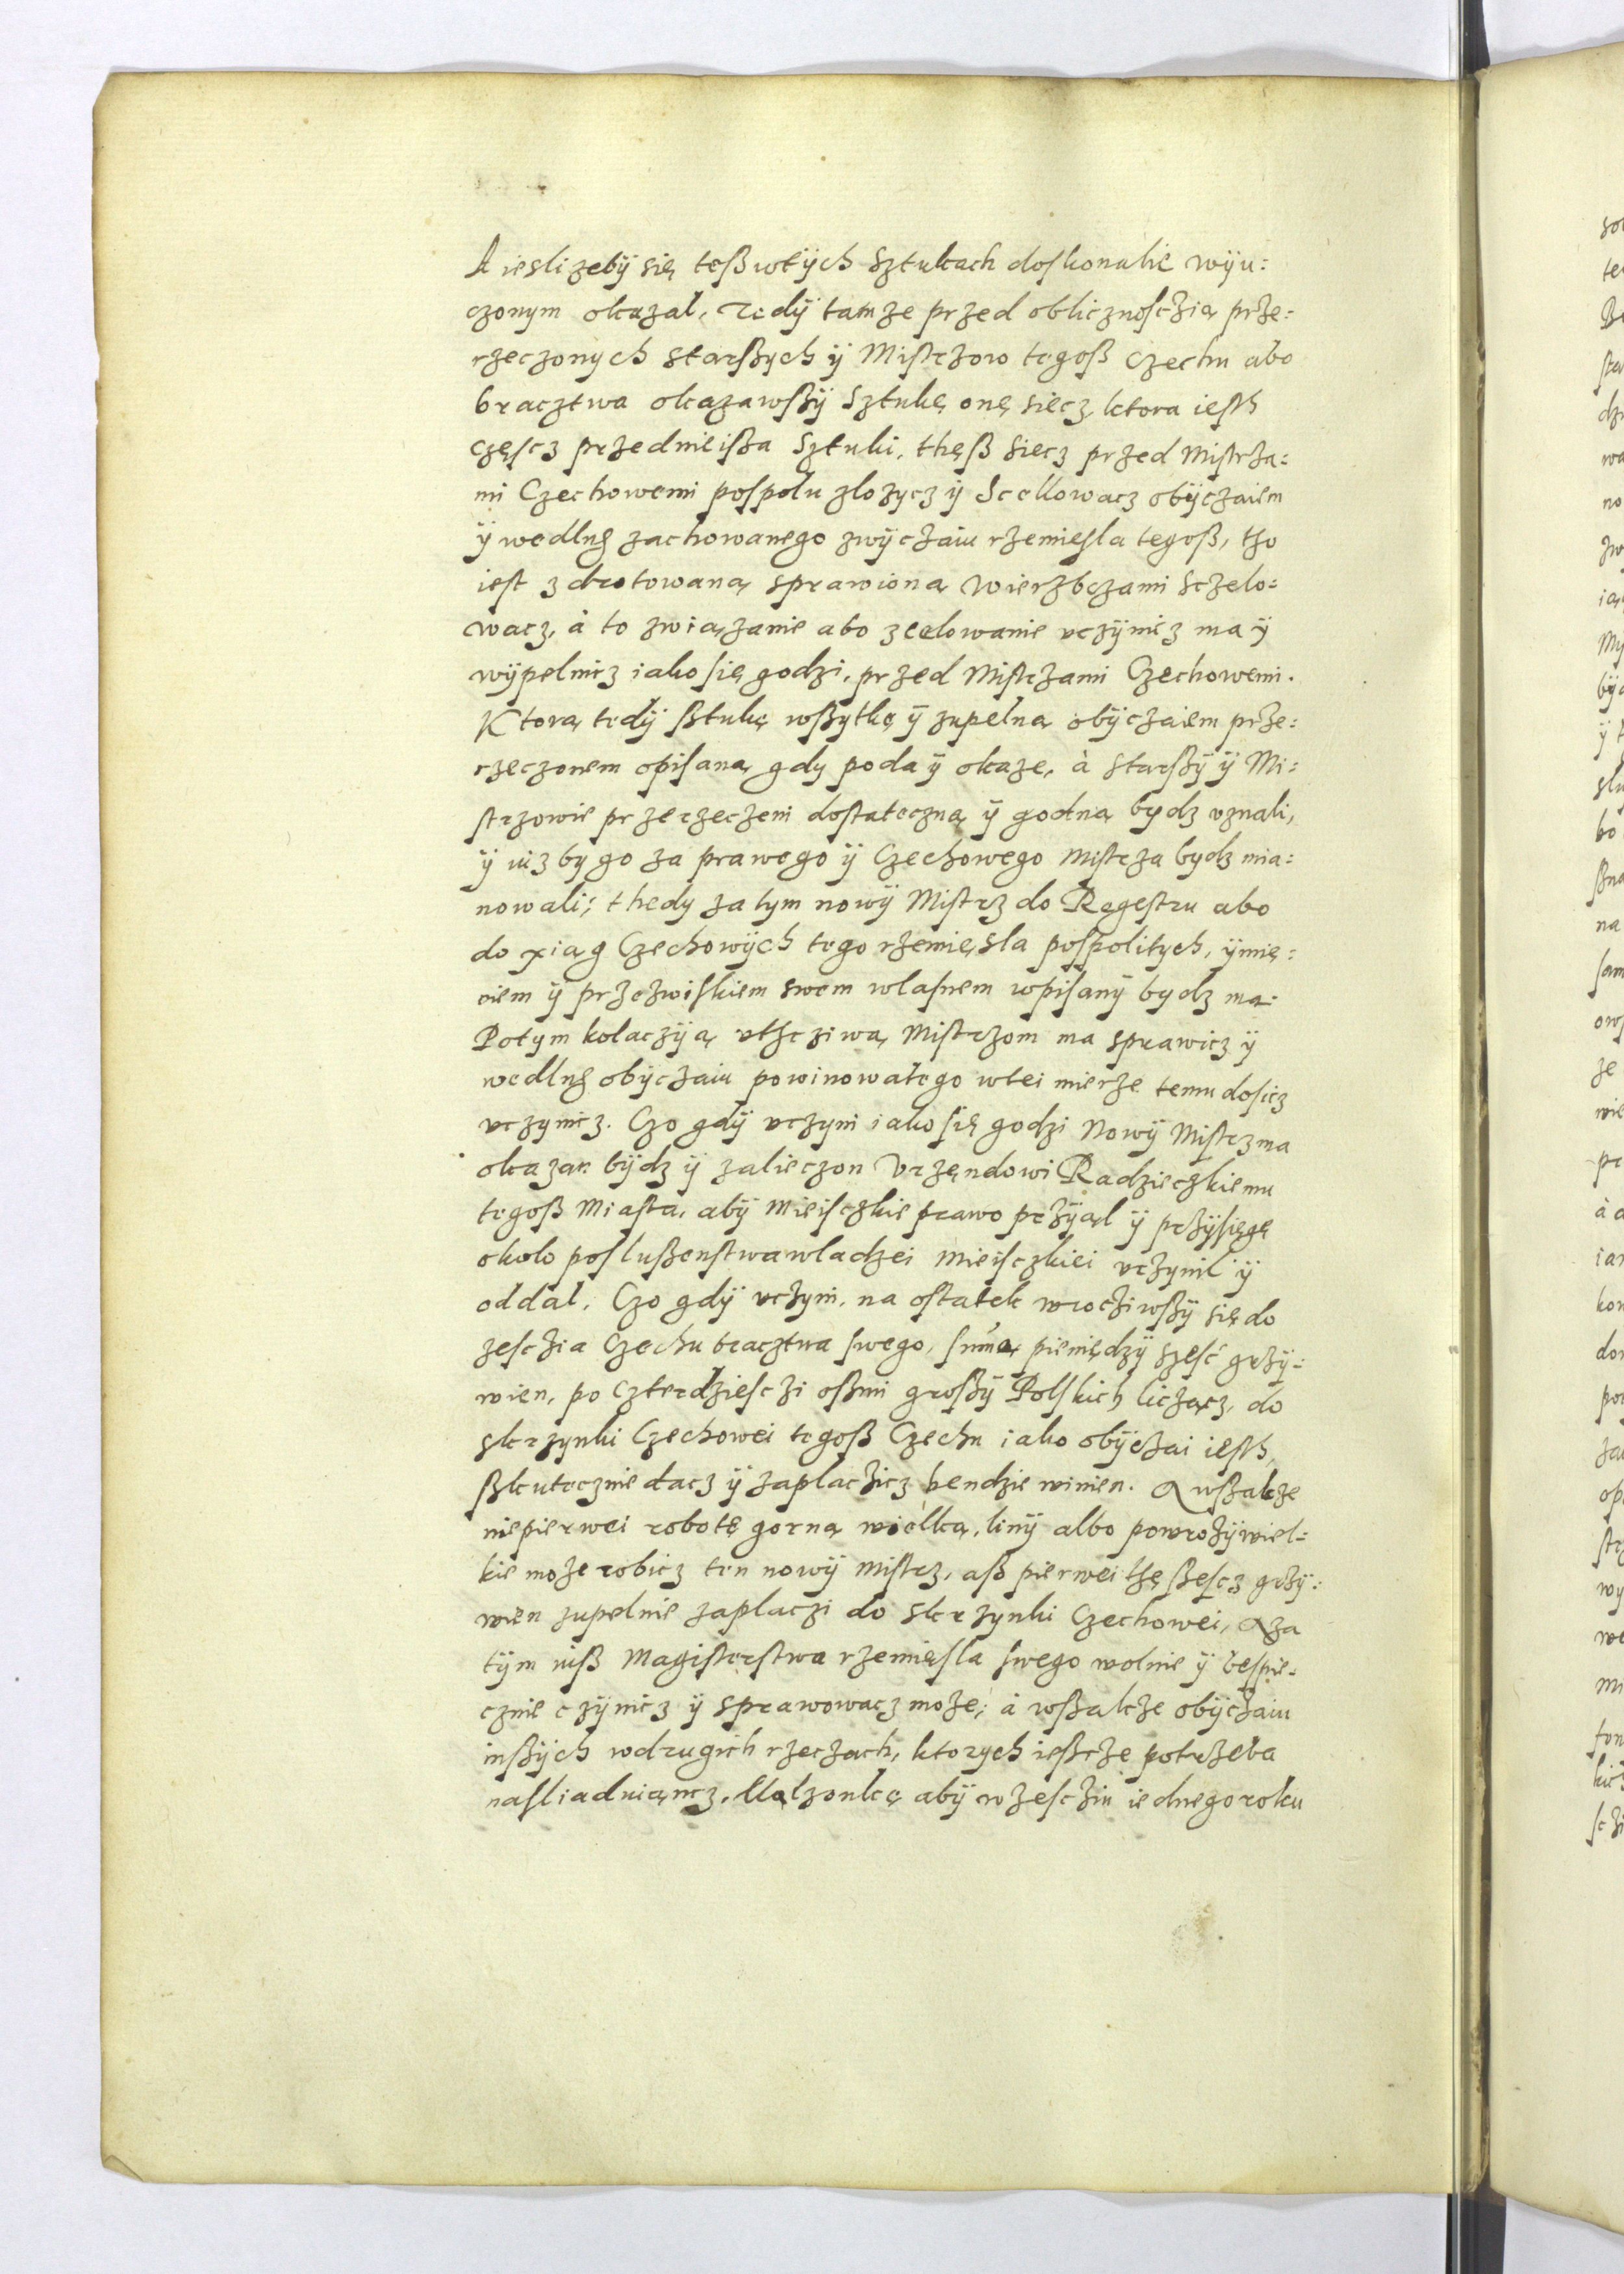 A ieslizebÿ się teß wtÿch Sztukach doskonalie wÿu:
czonym okazal, Tedÿ tamze przed oblicznosczią prze:
rzeczonych starßych ÿ Mistrzow tegoß Czechu abo
bracztwa okazawßÿ Sztukę onę siecz ktora iesth
częscz przednieißa Sztuki, theß siecz przed Mistrza:
mi Czechowemi pospolu zlozycz ÿ Scellowacz obÿczaiem
ÿ wedlug zachowanego zwÿczaiu rzemiesla tegoß, tho
iest zdrotowaną sprawioną Wierzbczami sczelo:
wacz, à to związanie abo zcelowanie vczÿnicz ma ÿ
wÿpelnicz iako się godzi, przed Mistrzami Czechowemi.
Ktorą tedÿ ßtukę wßytkę ÿ zupelną obÿczaiem prze:
rzeczonem opisaną gdy poda ÿ okaze, à starßÿ ÿ Mi:
strzowie przerzeczeni dostateczną ÿ godną bydz vznali,
ÿ iuz by go za prawego ÿ Czechowego Mistrza bydz mia:
nowali; thedy zatym nowÿ Mistrz do Regestru abo
do xiąg Czechowÿch tego rzemięsla pospolitych, ÿmie:
niem ÿ przezwiskiem swem wlasnem wpisanÿ bydz ma.
Potym kolaczÿą vthcziwą Mistrzom ma sprawicz ÿ
wedlug obÿczaiu powinowatego wtei mierze temu dosicz
vczynicz. Czo gdÿ vczyni iako się godzi Nowÿ Mistrz ma
okazan bÿdz ÿ zalieczon Vrzędowi Radzieczkiemu
tegoß Miasta, abÿ Mieisczkie prawo przÿął ÿ przÿsięgę
okolo poslußenstwa wladzei mieisczkiei vczynil ÿ
oddal, Czo gdÿ vczyni, na ostatek wrocziwßÿ się do
zesczia Czechu bracztwa swego, summą pieniędzÿ szesć grzÿ:
wien, po czterdziesczi osßmi großÿ Polskich licząc, do
skrzynki Czechowei tegoß Czechu iako obÿczai iesth,
ßkutecznie dacz ÿ zaplaczicz bendzie winien. Awßakze
niepierwei robotę gorną wielką, linÿ albo powrozÿ wiel:
kie moze robicz ten nowÿ Mistrz, aß pierwei thę ßescz grzÿ:
wien zupelnie zaplaczi do skrzynki Czechowei, A za
tÿm iuß Magisterstwa rzemięsla swego wolnie ÿ bespie:
cznie czÿnicz ÿ sprawowacz moze; à wßakze obÿczaiu
inßÿch wdrugich rzeczach, ktorych ießcze potrzeba
Małzonkę abÿ wzescziu iednego roku